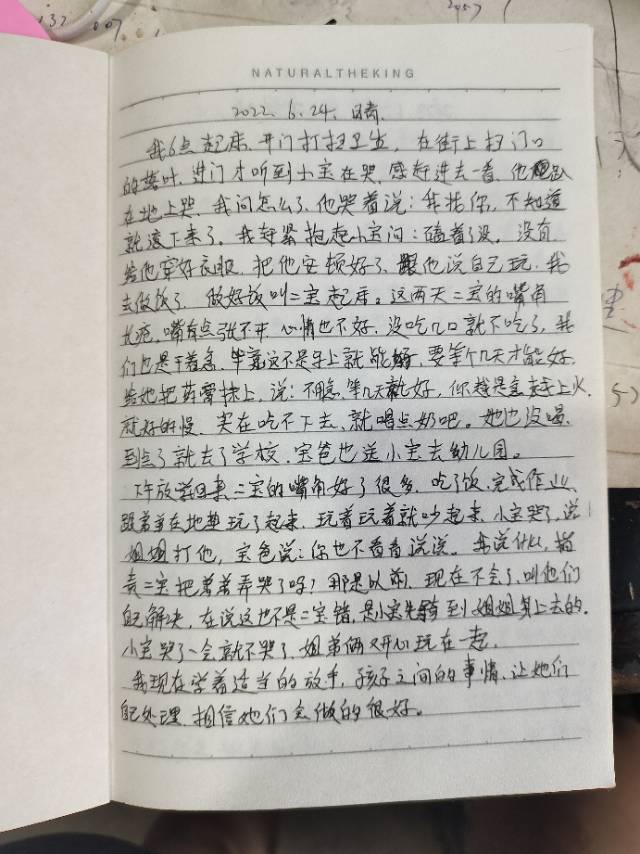 132 007
2457
NATURALTHEKING
2022. 6. 24. 日斋.
我6点起床,开门打扫卫生,在街上扫门口
的落叶,进门才听到小宝在哭,感赶进去一看,他趴
在地上哭,我问怎么了,他哭着说:我找你,不知道
就滚下来了。我赶紧抱起小宝问:磕着了没,没有
给他穿好衣服,把他安顿好了,跟他说自己玩,我
去做饭了,做好饭叫二宝起床。这两天二宝的嘴角
长疮,嘴有点张不开,心情也不好,没吃几口就不吃了,我
们也是干着急,毕竟这不是马上就能好,要等个几天才能好,
给她把药膏抹上,说:不急,等几天就好,你越是急越上火,
就好的慢,实在吃不下去,就喝点奶吧。她也没喝,
到点了就去了学校,宝爸也送小宝去幼儿园。
下午放学回来二宝的嘴角好了很多,吃了饭,完成作业,
跟弟弟在地垫玩了起来,玩着玩着就吵起来,小宝哭了,说
姐姐打他,宝爸说:你也不看看说说。我说什么,指
责二宝把弟弟弄哭了吗?那是以前,现在不会了,叫他们
自己解决,在说这也不是二宝错,是小宝先骑到姐姐身上去的.
小宝哭了一会就不哭了,姐弟俩又开心玩在一起,
我现在学着适当的放手,孩子之间的事情,让她们
自己处理,相信她们会做的很好。